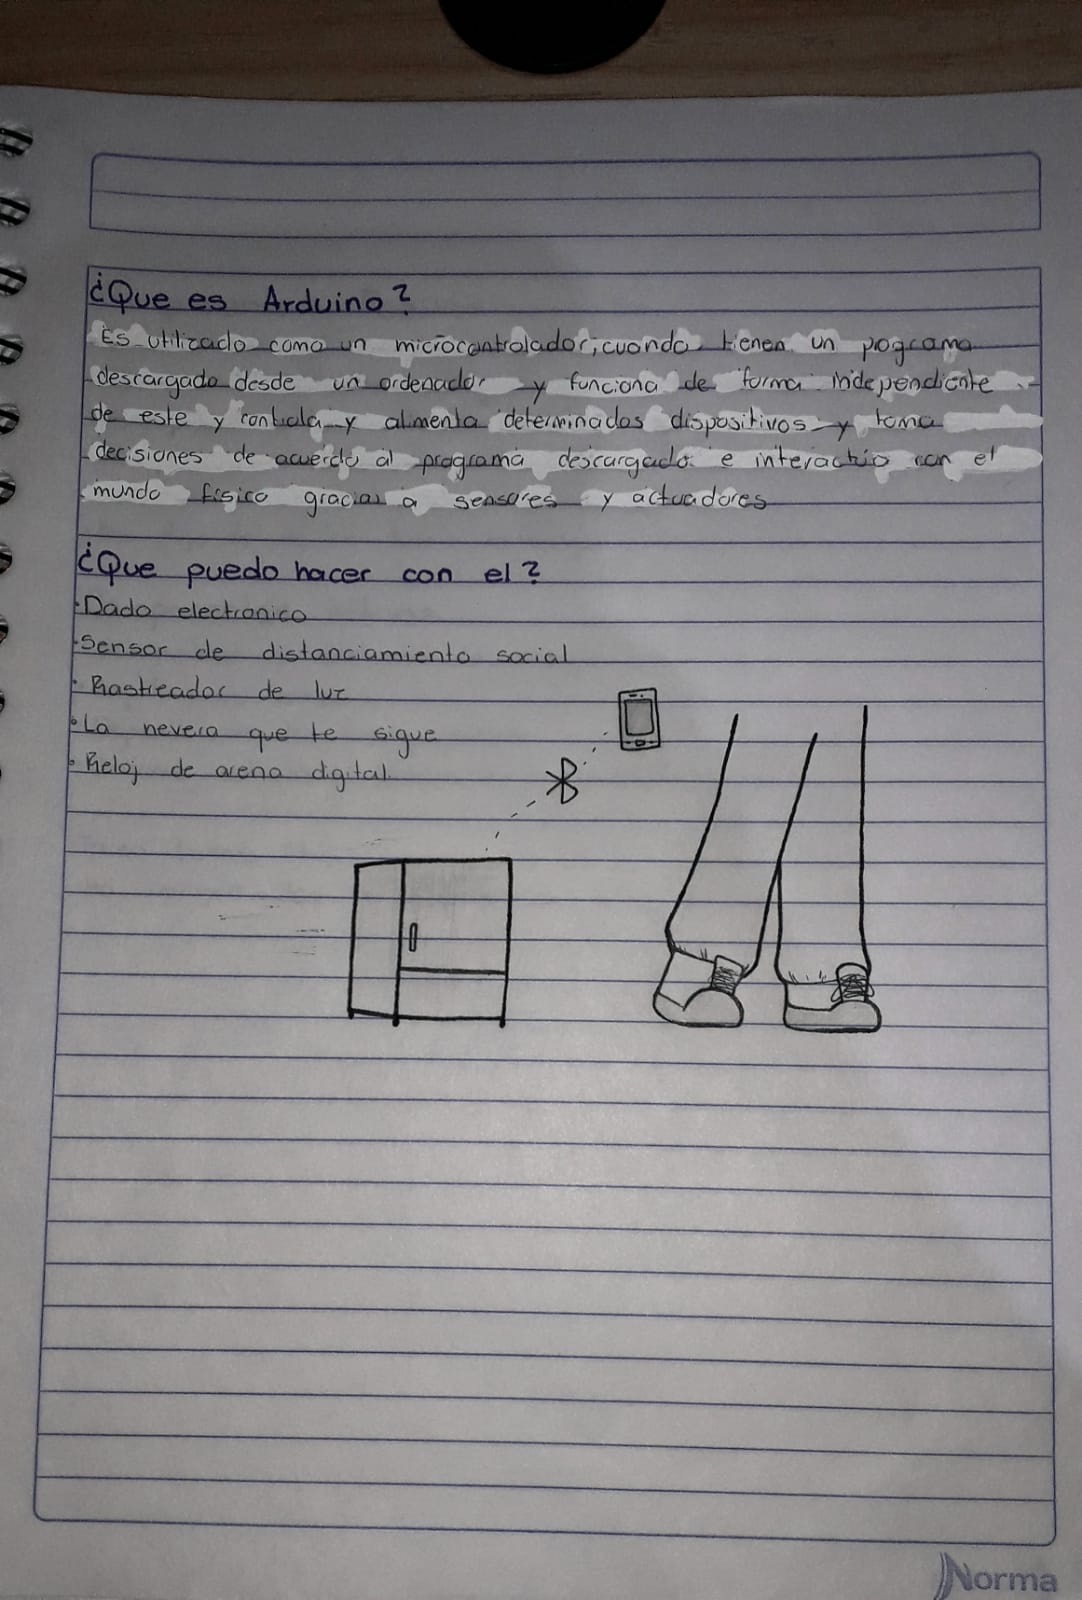 ¿Que es Arduino?
Es utilizado como un microcontrolador, cuando tienen un pograma
descargado desde un ordenador y funciona de forma independiente
de este y controla y alimenta determinados dispositivos y toma
decisiones de acuerdo al programa descargado e interactúo con el
mundo físico gracias a sensores y actuadores
¿Que puedo hacer con el?
·Dado electronico
·Sensor de distanciamiento social
·Rastreador de luz
·La nevera que te sigue
·Reloj de arena digital
Norma